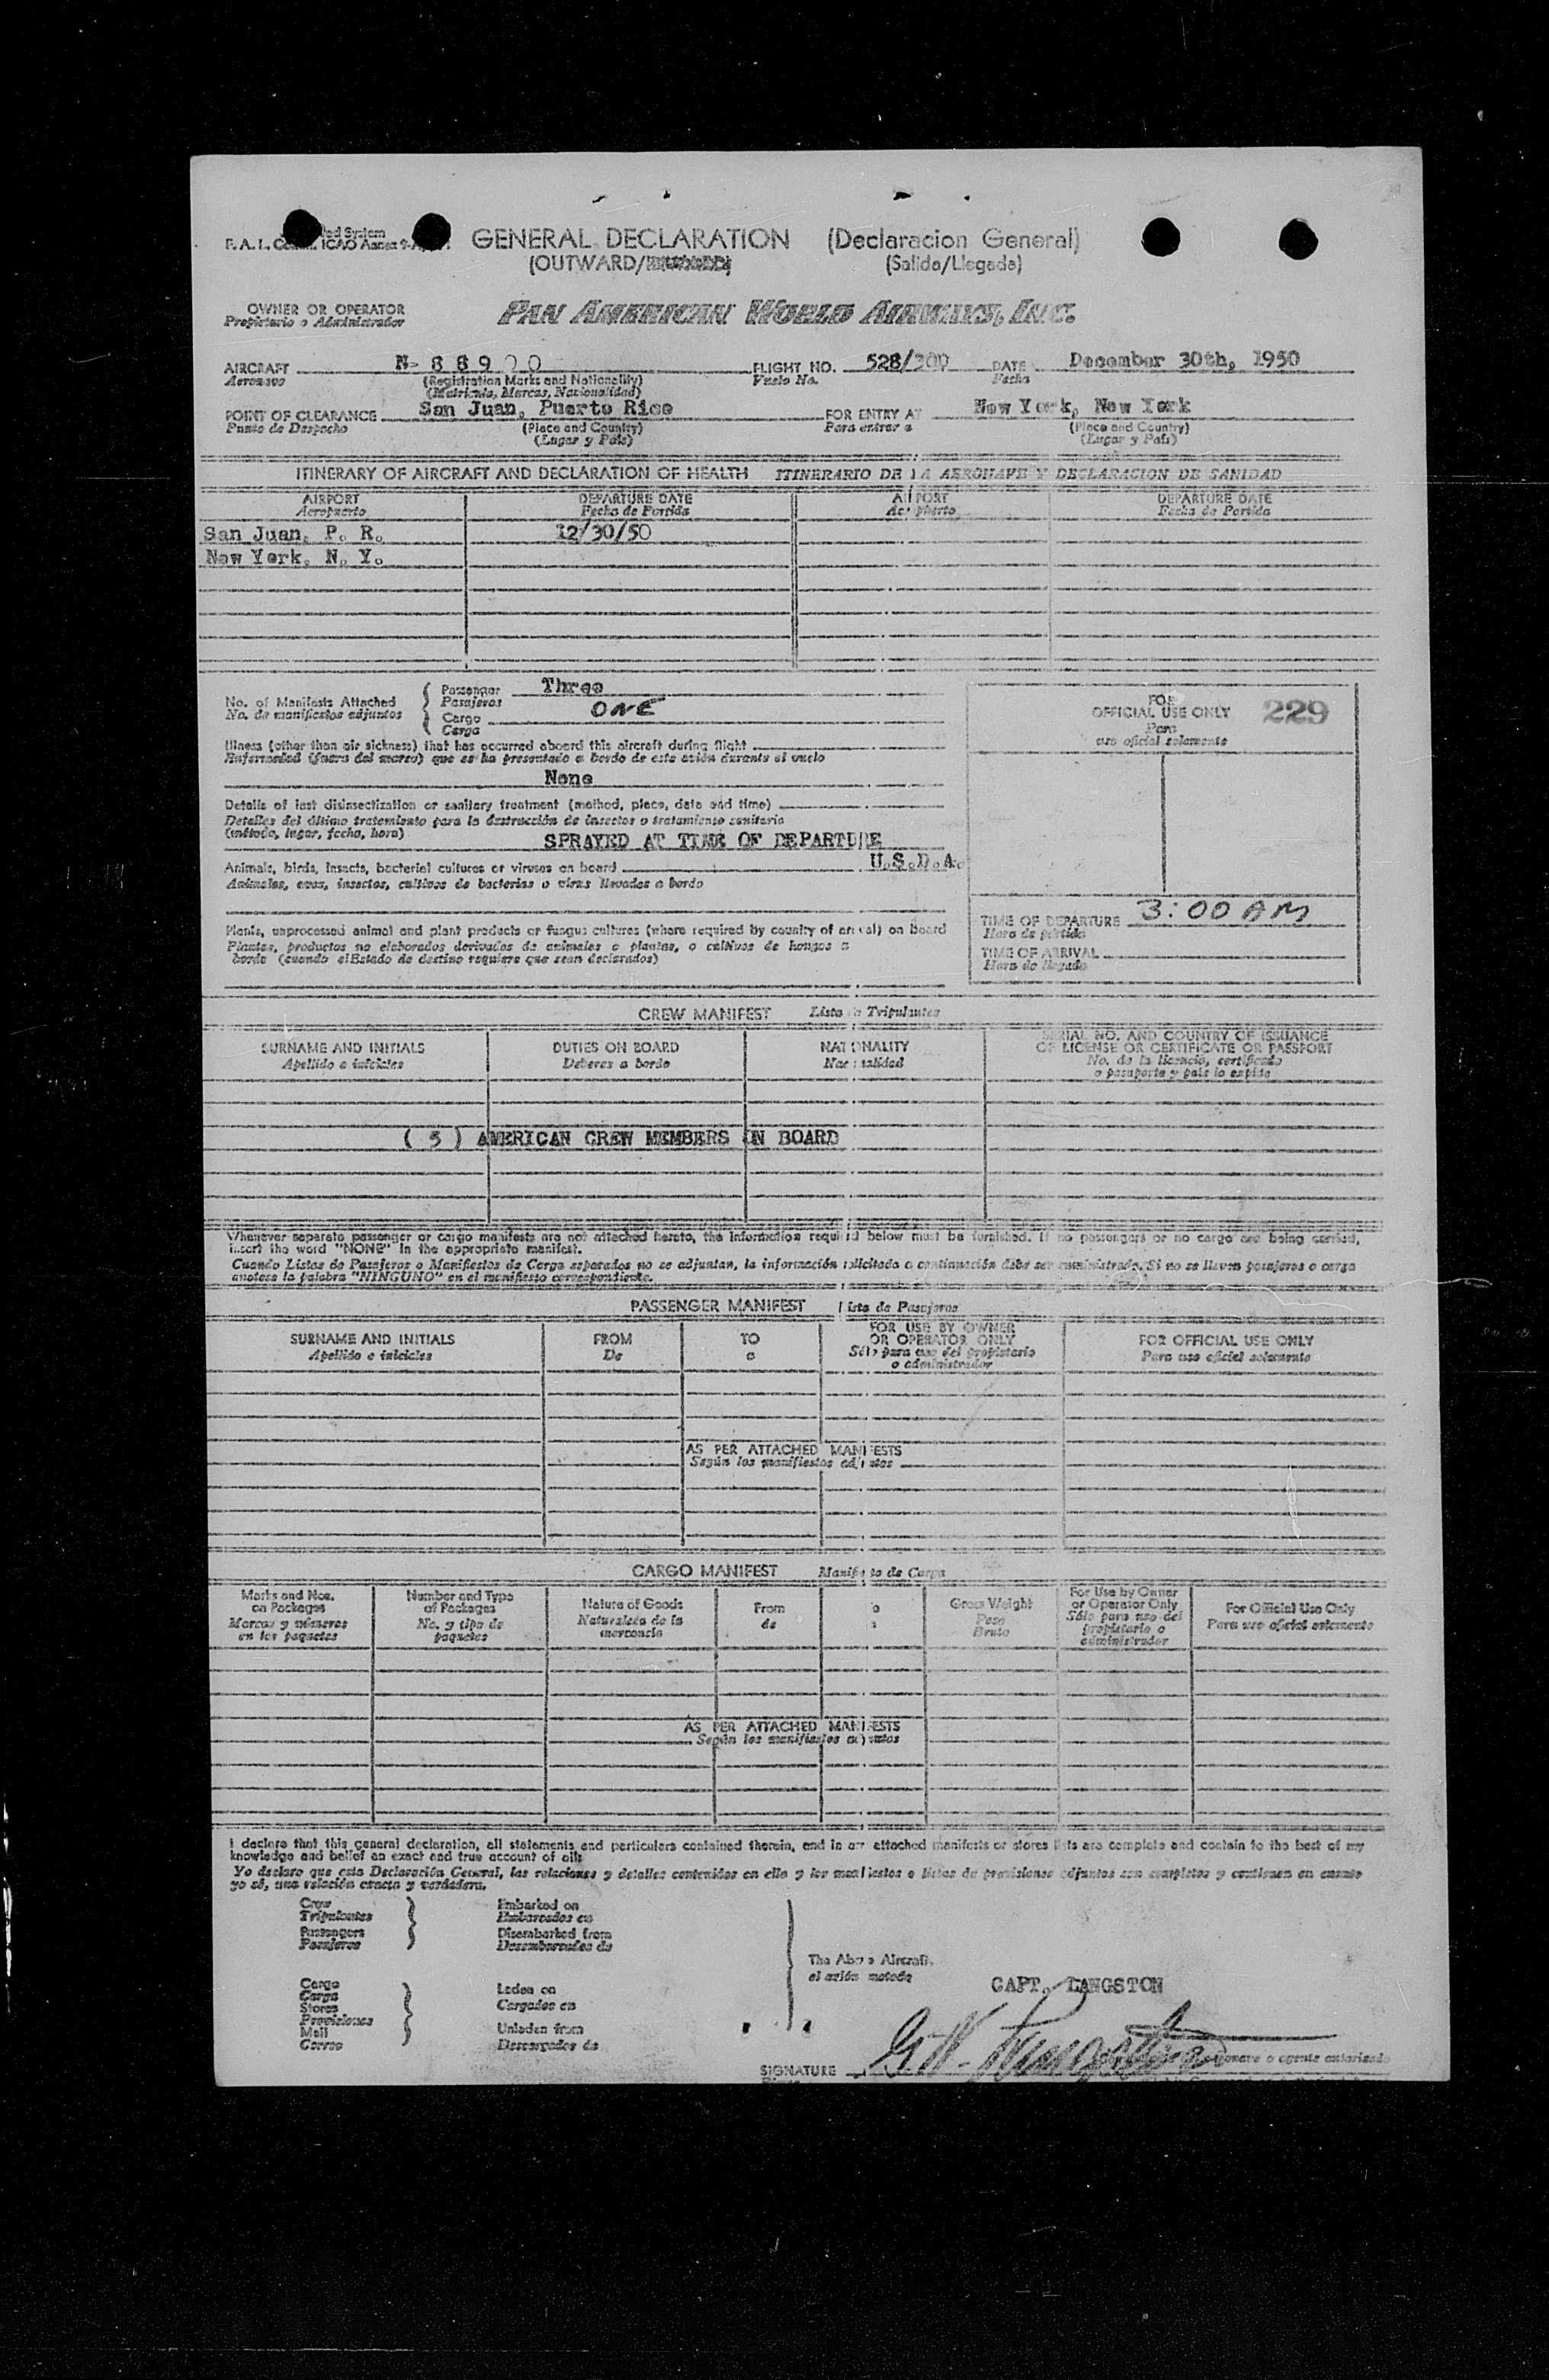 GENERAL DECLARATION (Declaracion General)
(OUTWARD/ (Salida/Llegada)
OWNER OR OPERATOR PAN AMERICAN WORLD AIRWAYS, INC.
Propietario o Administrador
AIRCRAFT N-88900 FLIGHT NO. 528/ DATE December 30th, 1950
Aeronave (Registration Marks and Nationality) Vuelo No. Fecha
(Matricula, Marcas, Nacionalidad)
POINT OF CLEARANCE San Juan, Puerto Rico FOR ENTRY AT New York, New York
Punto de Despacho (Place and Country) Para entrar a (Place and Country)
(Lugar y País) (Lugar y País)
ITINERARY OF AIRCRAFT AND DECLARATION OF HEALTH ITINERARIO DE LA AERONAVE Y DECLARACION DE SANIDAD
AIRPORT DEPARTURE DATE AIRPORT DEPARTURE DATE
Aeropuerto Fecha de Partida Aeropuerto Fecha de Partida
San Juan, P. R. 12/30/50
New York, N. Y.
No. of Manifests Attached Passenger Three
No. de manifiestos adjuntos Pasajeros
Cargo ONE
Carga
FOR
OFFICIAL USE ONLY 229
Para
uso oficial solamente
Illness (other than air sickness) that has occurred aboard this aircraft during flight
Enfermedad (fuera del mareo) que se ha presentado a bordo de este avión durante el vuelo
None
Details of last disinsectization or sanitary treatment (method, place, date and time)
Detalles del último tratamiento para la destrucción de insectos o tratamiento sanitario
(método, lugar, fecha, hora)
SPRAYED AT TIME OF DEPARTURE
U.S.D.A.
Animals, birds, insects, bacterial cultures or viruses on board
Animales, aves, insectos, cultivos de bacterias o virus llevados a bordo
Plants, unprocessed animal and plant products or fungus cultures (where required by country of arrival) on board
Plantas, productos no elaborados derivados de animales o plantas, o cultivos de hongos a
bordo (cuando el Estado de destino requiere que sean declarados)
TIME OF DEPARTURE 3:00 AM
Hora de partida
TIME OF ARRIVAL
Hora de llegada
CREW MANIFEST Lista de Tripulantes
SURNAME AND INITIALS DUTIES ON BOARD NATIONALITY SERIAL NO. AND COUNTRY OF ISSUANCE
Apellido e iniciales Deberes a bordo Nacionalidad OF LICENSE OR CERTIFICATE OR PASSPORT
No. de la licencia, certificado
o pasaporte y país lo expide
( 5 ) AMERICAN CREW MEMBERS ON BOARD
Whenever separate passenger or cargo manifests are not attached hereto, the information required below must be furnished. If no passengers or no cargo are being carried,
insert the word "NONE" in the appropriate manifest.
Cuando Listas de Pasajeros o Manifiestos de Carga separados no se adjuntan, la información solicitada a continuación debe ser suministrada. Si no se llevan pasajeros o carga
anotese la palabra "NINGUNO" en el manifiesto correspondiente.
PASSENGER MANIFEST Lista de Pasajeros
SURNAME AND INITIALS FROM TO FOR USE BY OWNER FOR OFFICIAL USE ONLY
Apellido e iniciales De a OR OPERATOR ONLY Para uso oficial solamente
Sólo para uso del propietario
o administrador
AS PER ATTACHED MANIFESTS
Según los manifiestos adjuntos
CARGO MANIFEST Manifiesto de Carga
Marks and Nos. Number and Type Nature of Goods From To Gross Weight For Use by Owner For Official Use Only
on Packages of Packages Naturaleza de la de a Peso or Operator Only Para uso oficial solamente
Marcas y números No. y tipo de mercancía Bruto Sólo para uso del
en los paquetes paquetes propietario o
administrador
AS PER ATTACHED MANIFESTS
Según los manifiestos adjuntos
I declare that this general declaration, all statements and particulars contained therein, and in any attached manifests or stores lists are complete and contain to the best of my
knowledge and belief an exact and true account of all:
Yo declaro que esta Declaración General, las relaciones y detalles contenidos en ella y los manifiestos o listas de provisiones adjuntos son completos y contienen en cuanto
yo sé, una relación exacta y verdadera.
Crew Embarked on
Tripulantes Embarcados en
Passengers Disembarked from
Pasajeros Desembarcados de
The Above Aircraft.
el avión notado
CAPT. LANGSTON
Cargo Laden on
Carga Cargados en
Stores
Provisiones
Mail Unladen from
Correo Descargados de
SIGNATURE G.W. Langston
aeronave o agente autorizado